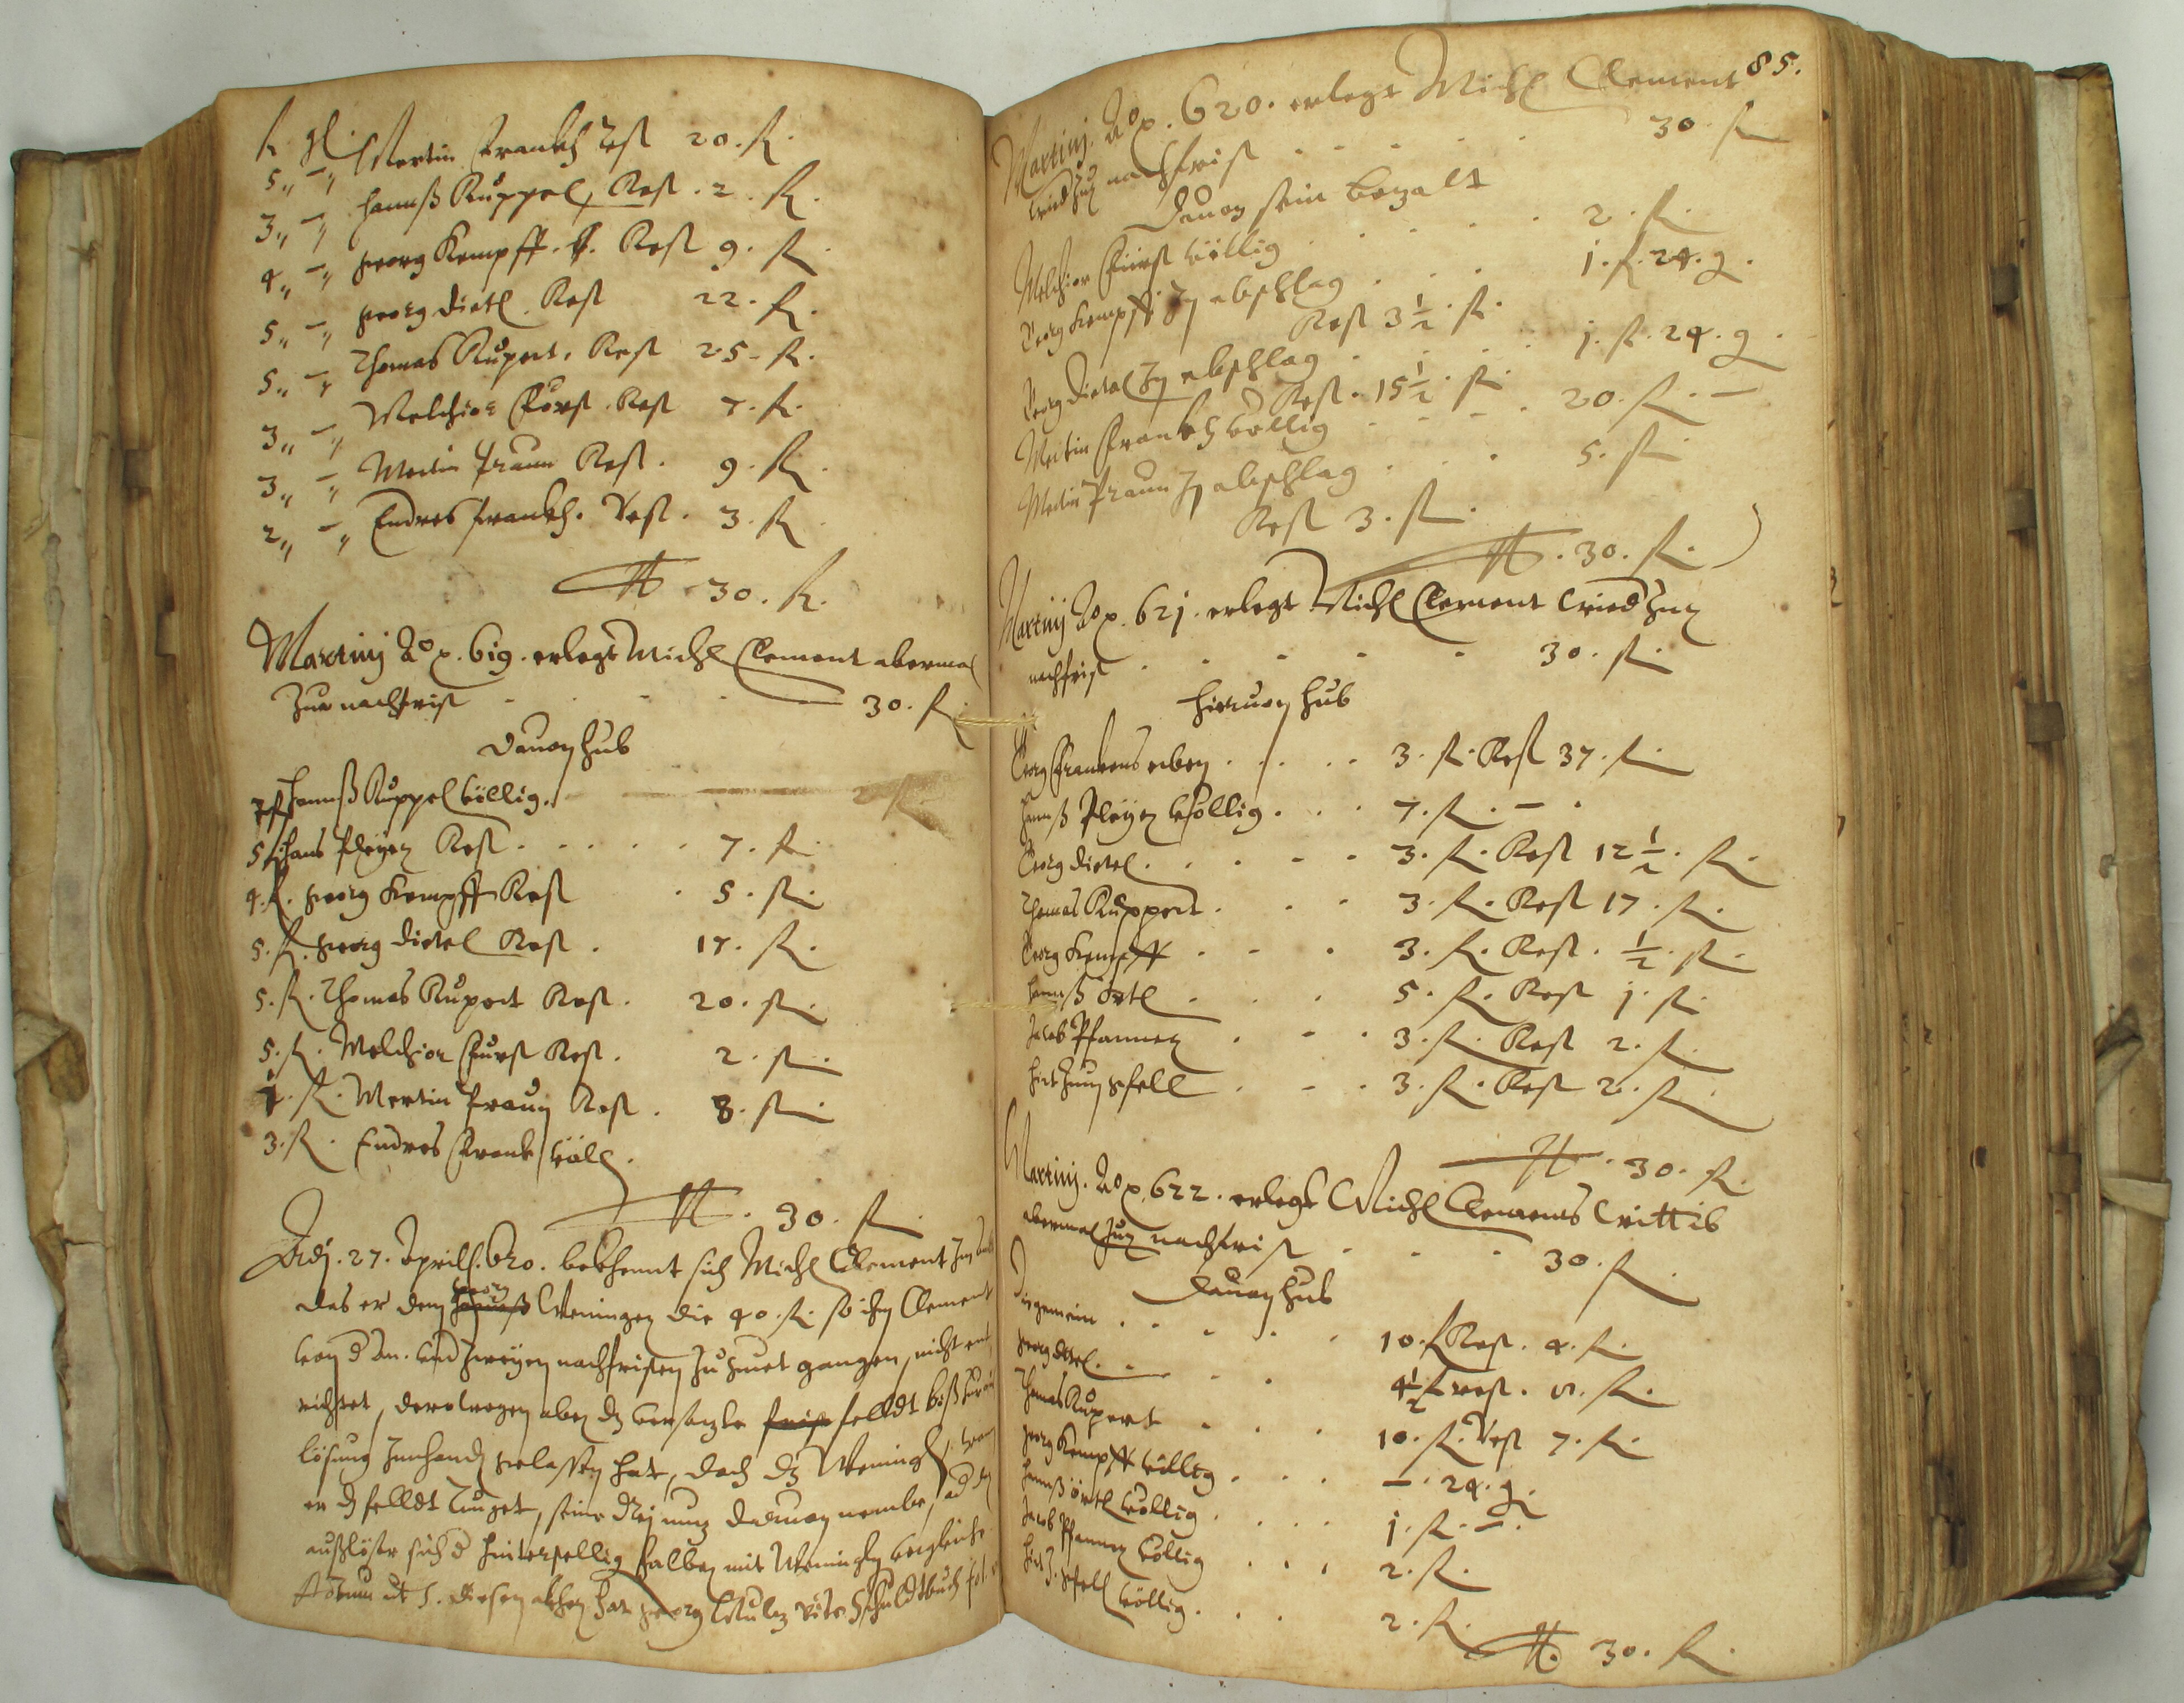 fl. gl. Mertin Franckh Rest 20. fl.
5 „ – „ Hannß Ruppel, Rest. 2. fl.
3 „ – „ Georg Kempff. Rest 9. fl.
4 „ – „ Georg Dietl. Rest 22. fl.
5 „ – „ Thomas Rupert. Rest 25. fl.
5 „ – „ Melchior Fürst. Rest 7. fl.
3 „ – „ Mertin Praun Rest. 9. fl.
3 „ – „ Endres Franckh. Rest. 3. fl.
2 „ – „
30. fl.
Martinj Aō. 619. erlegt Michl Clement abermal
Zur nachfrist 30. fl.
Dauon hub
Hannß Ruppel völlig. 2 fl.
5 fl Hans Pleyer Rest. 7. fl.
4. fl. Georg Kempff Rest 5. fl.
5. fl. Georg Dietel Rest. 17. fl.
5. fl. Thomas Rupert Rest. 20. fl.
5. fl. Melchior Fürst Rest. 2. fl.
1. fl. Mertin Praun Rest. 8. fl.
3. fl. Endres Franck völl.
30. fl.
Adj. 27. Aprill. 620. bekhennt sich Michl Clement
das er dem Georg Weninger die 40. fl. so ihm Clement
von und zweyen nachfristen zu guet gangen, nicht ent
richtet, derentwegen aber dz versazte felldt biß zur
lösung Inhandt gelassen hat, doch dz Weningl
er dz felldt, seine darvon nembe,
außlöste sich hinterstellig halben mit Weninger vergleiche
diesen hat Georg Schuldtbuch fol.
85.
Martinj. Aō. 620. erlegt Michl Clement
wied Zur nachfrist 30. fl
Dauon sein bezalt
Melchior Fürst völlig 2. fl.
Georg Kempff Zu abschlag 1. fl. 24. g.
Rest 3 1/2. fl.
Georg Dietel Zu abschlag 1. fl. 24. g.
Rest. 15 1/2. fl.
Mertin Franckh völlig 20. fl. –
Mertin Praun Zu abschlag 5. fl
Rest 3. fl.
30. fl.
Martinj Aō. 621. erlegt Michl Clement wied Zur
nachfrist 30. fl.
Hieruon hub
Georg Franckens erben. 3. fl. Rest 37. fl.
Hannß Pleyer völlig. 7. fl. –
Georg Dietel. 3. fl. Rest 12 1/2. fl.
Thomas Ruppert. 3. fl. Rest 17. fl.
Georg Kempff 3. fl. Rest. 1/2. fl.
Hannß Örtl 5. fl. Rest 1. fl.
Jacob Pfanner 3. fl. Rest 2. fl.
3. fl. Rest 2. fl.
30. fl.
Martinj. Aō. 622. erlegt Michl Clements Wittib
abermal Zur nachfrist 30. fl.
Dauon hub
Die gemein 10. fl Rest. 4. fl.
Georg Dietel. 4 1/2 fl rest. 8. fl.
Thomas Rupert 10. fl. Rest 7. fl.
Georg Kempff völlig –. 24. g.
Hannß örtl völlig 1. fl. –.
Jacob Pfanner völlig 2. fl.
völlig. 2. fl.
30. fl.